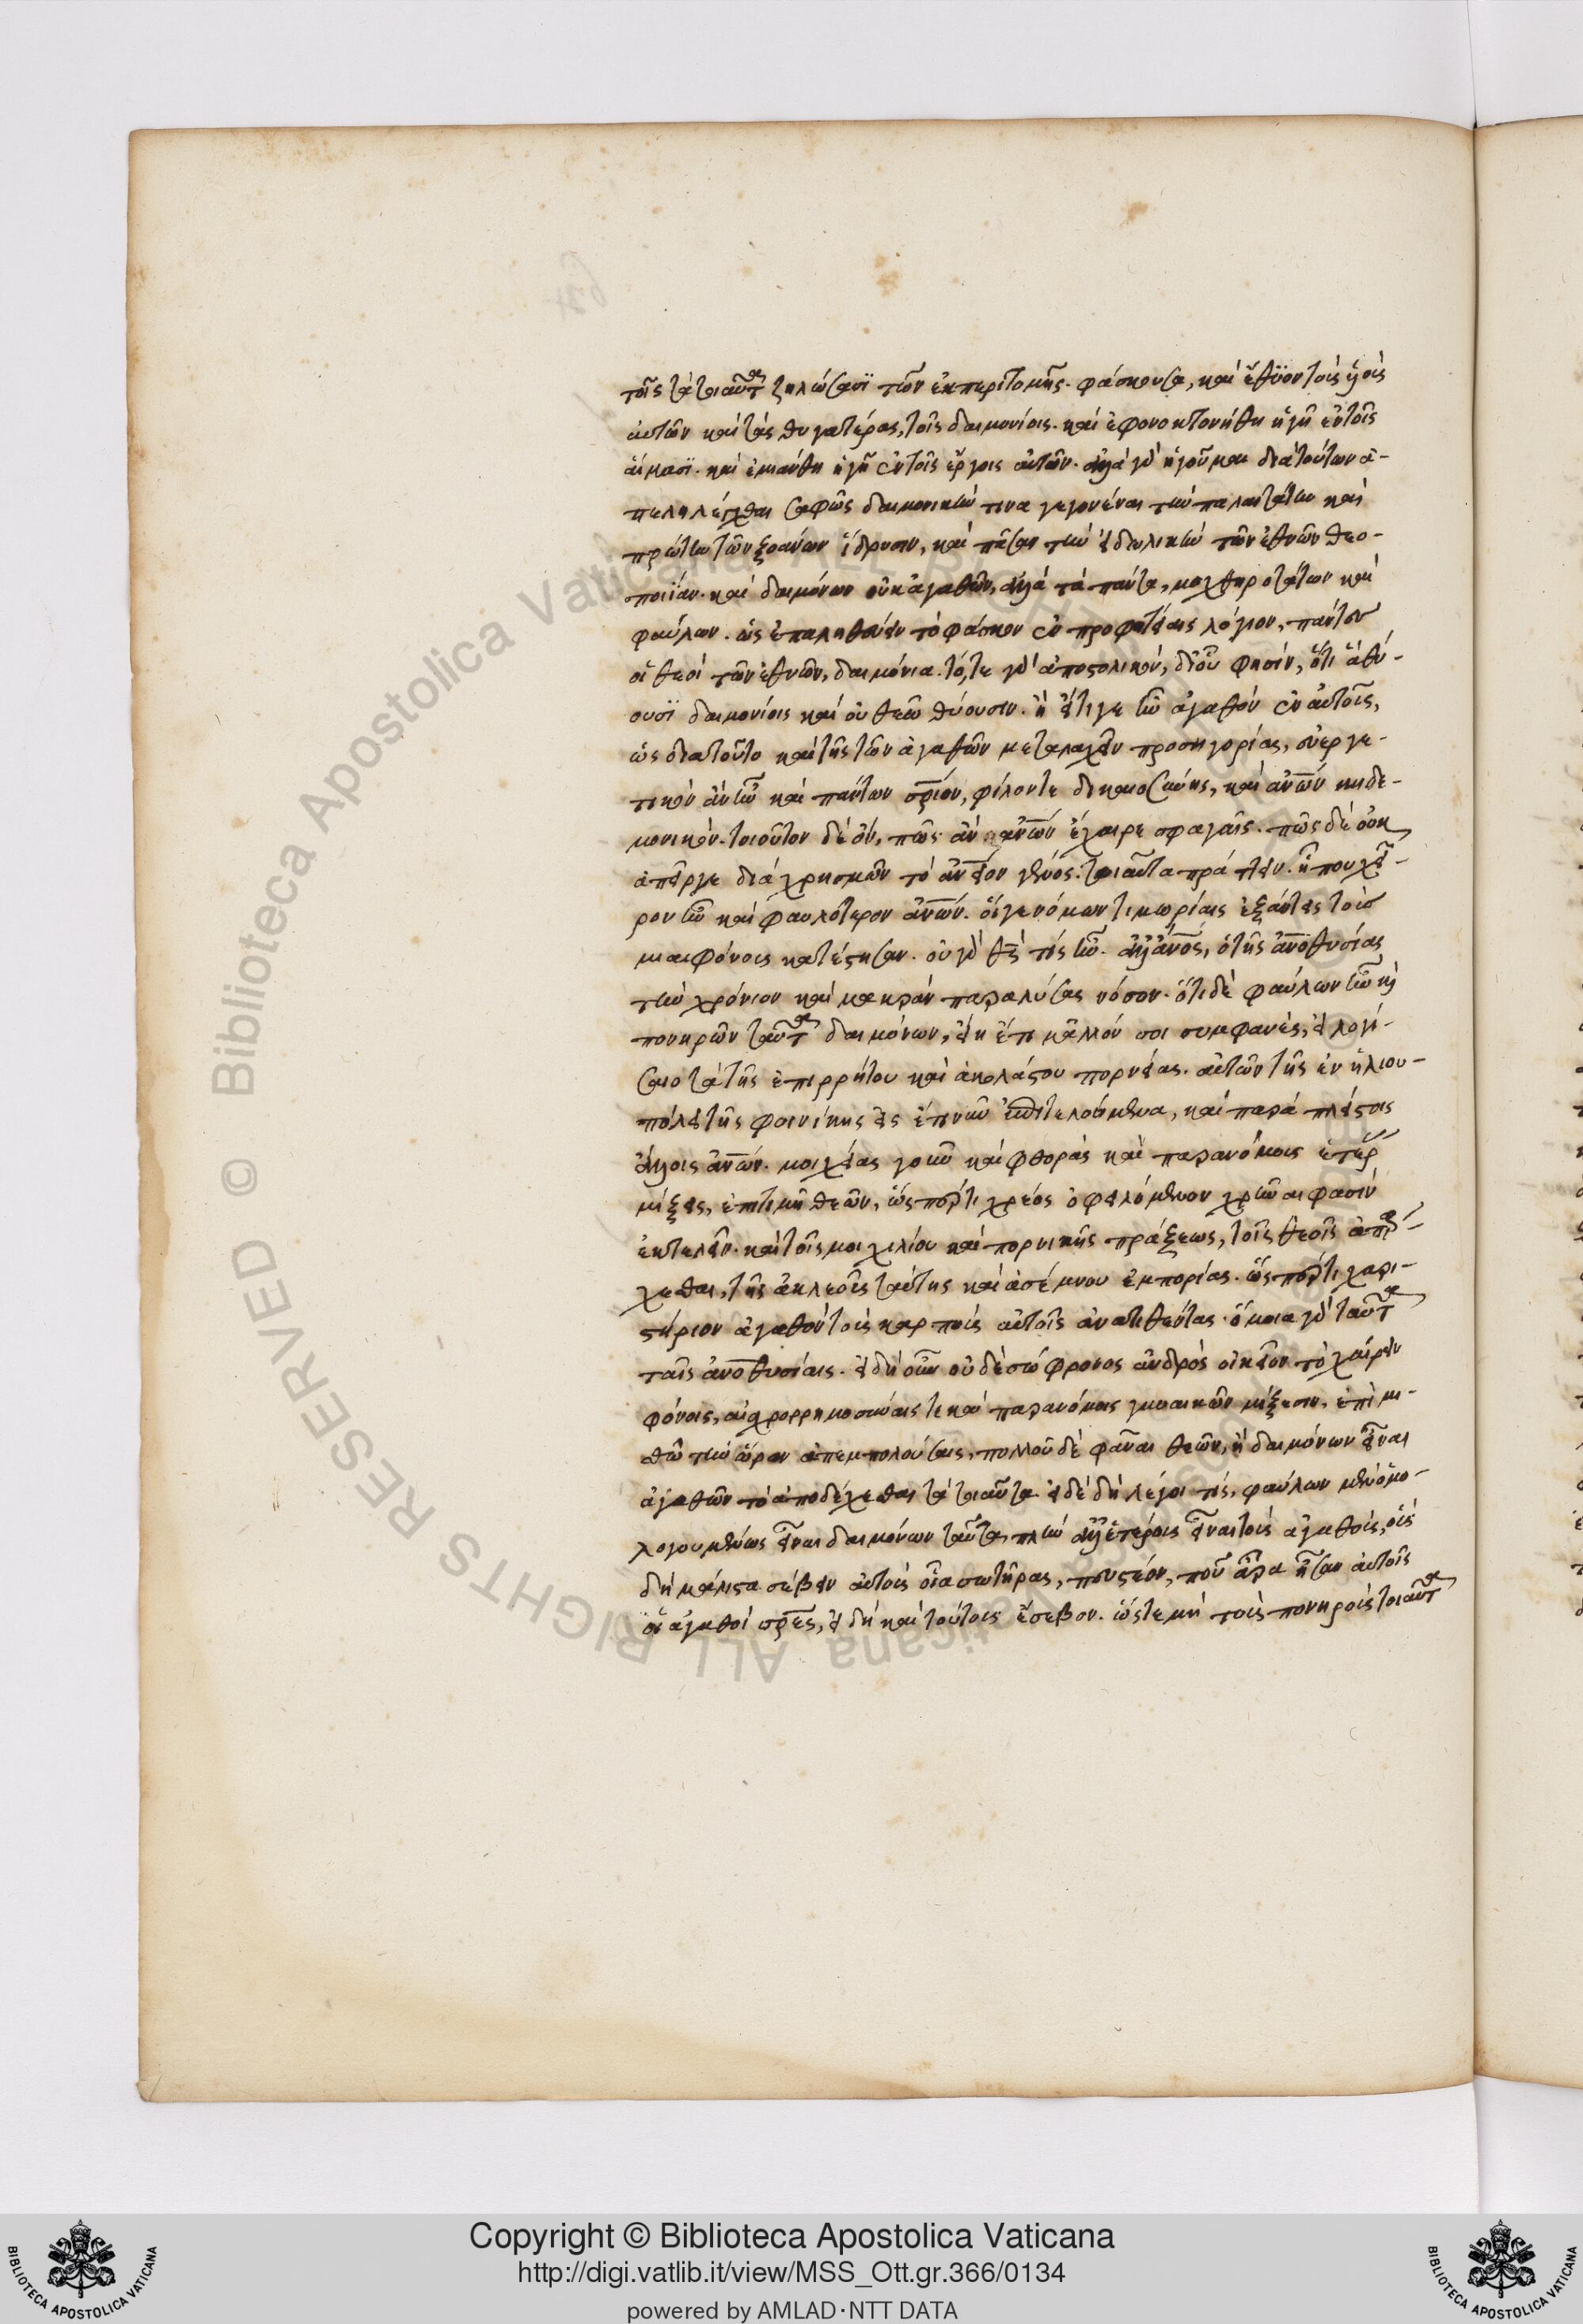 τοῖς τὰ τοιαῦτα ζηλώσασϊ τῶν ἐκ περιτομῆς φάσκουσα, καὶ ἔθϋον τοὺς ὑιοὺς
αὐτῶν καὶ τὰς θυγατέρας, τοῖς δαιμονίοις. καὶ ἐφονοκτονήθη ἡ γῆ ἐν τοῖς
αἵμασϊ. καὶ ἐμιάνθη ἡ γῆ ἐν τοῖς ἔργοις αὐτῶν. ἀλλὰ γὰρ ἡγοῦμαι διὰ τούτων ἀ-
πεληλέγχθαι σαφῶς δαιμονικήν τινα γεγονέναι τὴν παλαιτάτην καὶ
πρώτην τῶν ξοάνων ἵδρυσιν, καὶ πᾶσαν τὴν εἰδωλικὴν τῶν ἐθνῶν θεο-
ποιίαν. καὶ δαιμόνων οὐκ ἀγαθῶν, ἀλλὰ τὰ πάντα, μοχθηροτάτων καὶ
φαύλων. ὡς ἐπαληθεύειν τὸ φάσκον ἐν προφητείαις λόγιον, πάντες
οἱ θεοὶ τῶν ἐθνῶν, δαιμόνια. τό, τε γὰρ ἀποστολικὸν, δι' οὗ φησίν, ὅτι ἃ θύ-
ουσϊ δαιμονίοις καὶ οὐ θεῷ θύουσιν. ἢ εἴτι γε ἦν ἀγαθὸν ἐν αὐτοῖς,
ὡς διατοῦτο καὶ τῆς τῶν ἀγαθῶν μεταλαχεῖν προσηγορίας, εὐεργε-
τικὸν ἂν ἦν καὶ πάντων σωτήριον, φίλον τε δικαιοσύνης, καὶ ἀνων κηδε-
μονικόν. τοιοῦτον δὲ ὂν, πῶς ἂν ἀνων ἔχαιρε σφαγαῖς. πῶς δὲ οὐκ
ἀπεῖργε διὰ χρησμῶν τὸ ἀνειον γένος τοιαῦτα πράττειν. ἤπου χεῖ-
ρον ἦν καὶ φαυλότερον ἀνων. οἵγε νόμων τιμωρίαις ἐξάντεις τοὺς
μιαιφόνους κατέστησαν. οὐ γὰρ θς τὶς ἦν. ἀλλ' ἀνος, ὁ τῆς ἀνοθυσίας
τὴν χρόνιον καὶ μακρὰν παραλύσας νόσον. ὅτι δὲ φαύλων ἦν καὶ
πονηρῶν ταῦτα δαιμόνων, εἴη ἔτι μᾶλλόν σοι συμφανές, εἰ λογί-
σαιο τὰ τῆς ἐπιρρήτου καὶ ἀκολάστου πορνείας. αὐτῶν τῆς ἐν ἡλίου-
πόλει τῆς φοινίκης εἰς ἔτι νῦν ἐπιτελούμενα, καὶ παρὰ πλείστοις
ἄλλοις ἀνων. μοιχείας γοῦν καὶ φθορὰς καὶ παρανόμους ἑτέρ
μίξεις, ἐπὶ τιμῇ θεῶν, ὥσπέρ τι χρέος ὀφειλόμενον χρῆναι φασὶν
ἐκτελεῖν. καὶ τοῖς μοιχιδίου καὶ πορνικῆς πράξεως, τοῖς θεοῖς ἀπάρ-
χεσθαι, τῆς ἀκλεοῦς ταύτης καὶ ἀσέμνου ἐμπορίας. ὥσπέρ τι χαρι-
στήριον ἀγαθὸν τοὺς καρποὺς αὐτοῖς ἀνατιθέντας. ὅμοια γὰρ ταῦτα
ταῖς ἀνοθυσίαις. εἰ δὴ οὖν οὐδὲ σώφρονος ἀνδρὸς οἰκεῖον τὸ χαίρειν
φόνοις, αἰσχρορρημοσύναις τε καὶ παρανόμοις γυναικῶν μίξεσιν, ἐπὶ μι-
σθῷ τὴν ὥραν ἀπεμπολούσαις, πολλοῦ δὲ φάναι θεῶν, ἢ δαιμόνων εἶναι
ἀγαθῶν τὸ ἀποδέχεσθαι τὰ τοιαῦτα. εἰ δὲ δὴ λέγοι τὶς, φαύλων μὲν ὁμο-
λογουμένως εἶναι δαιμόνων ταῦτα, πλὴν ἀλλ' ἑτέρους εἶναι τοὺς ἀγαθοὺς, οὓς
δὴ μάλιστα σέβειν αὐτοὺς οἷα σωτῆρας, πευστέον, ποῦ ἄρα ἦσαν αὐτοῖς
οἱ ἀγαθοὶ σρες, εἰ δὴ καὶ τούτους ἔσεβον. ὥστε μὴ τοὺς πονηροὺς τοιαῦτα
Copyright © Biblioteca Apostolica Vaticana
http://digi.vatlib.it/view/MSS_Ott.gr.366/0134
powered by AMLAD·NTT DATA